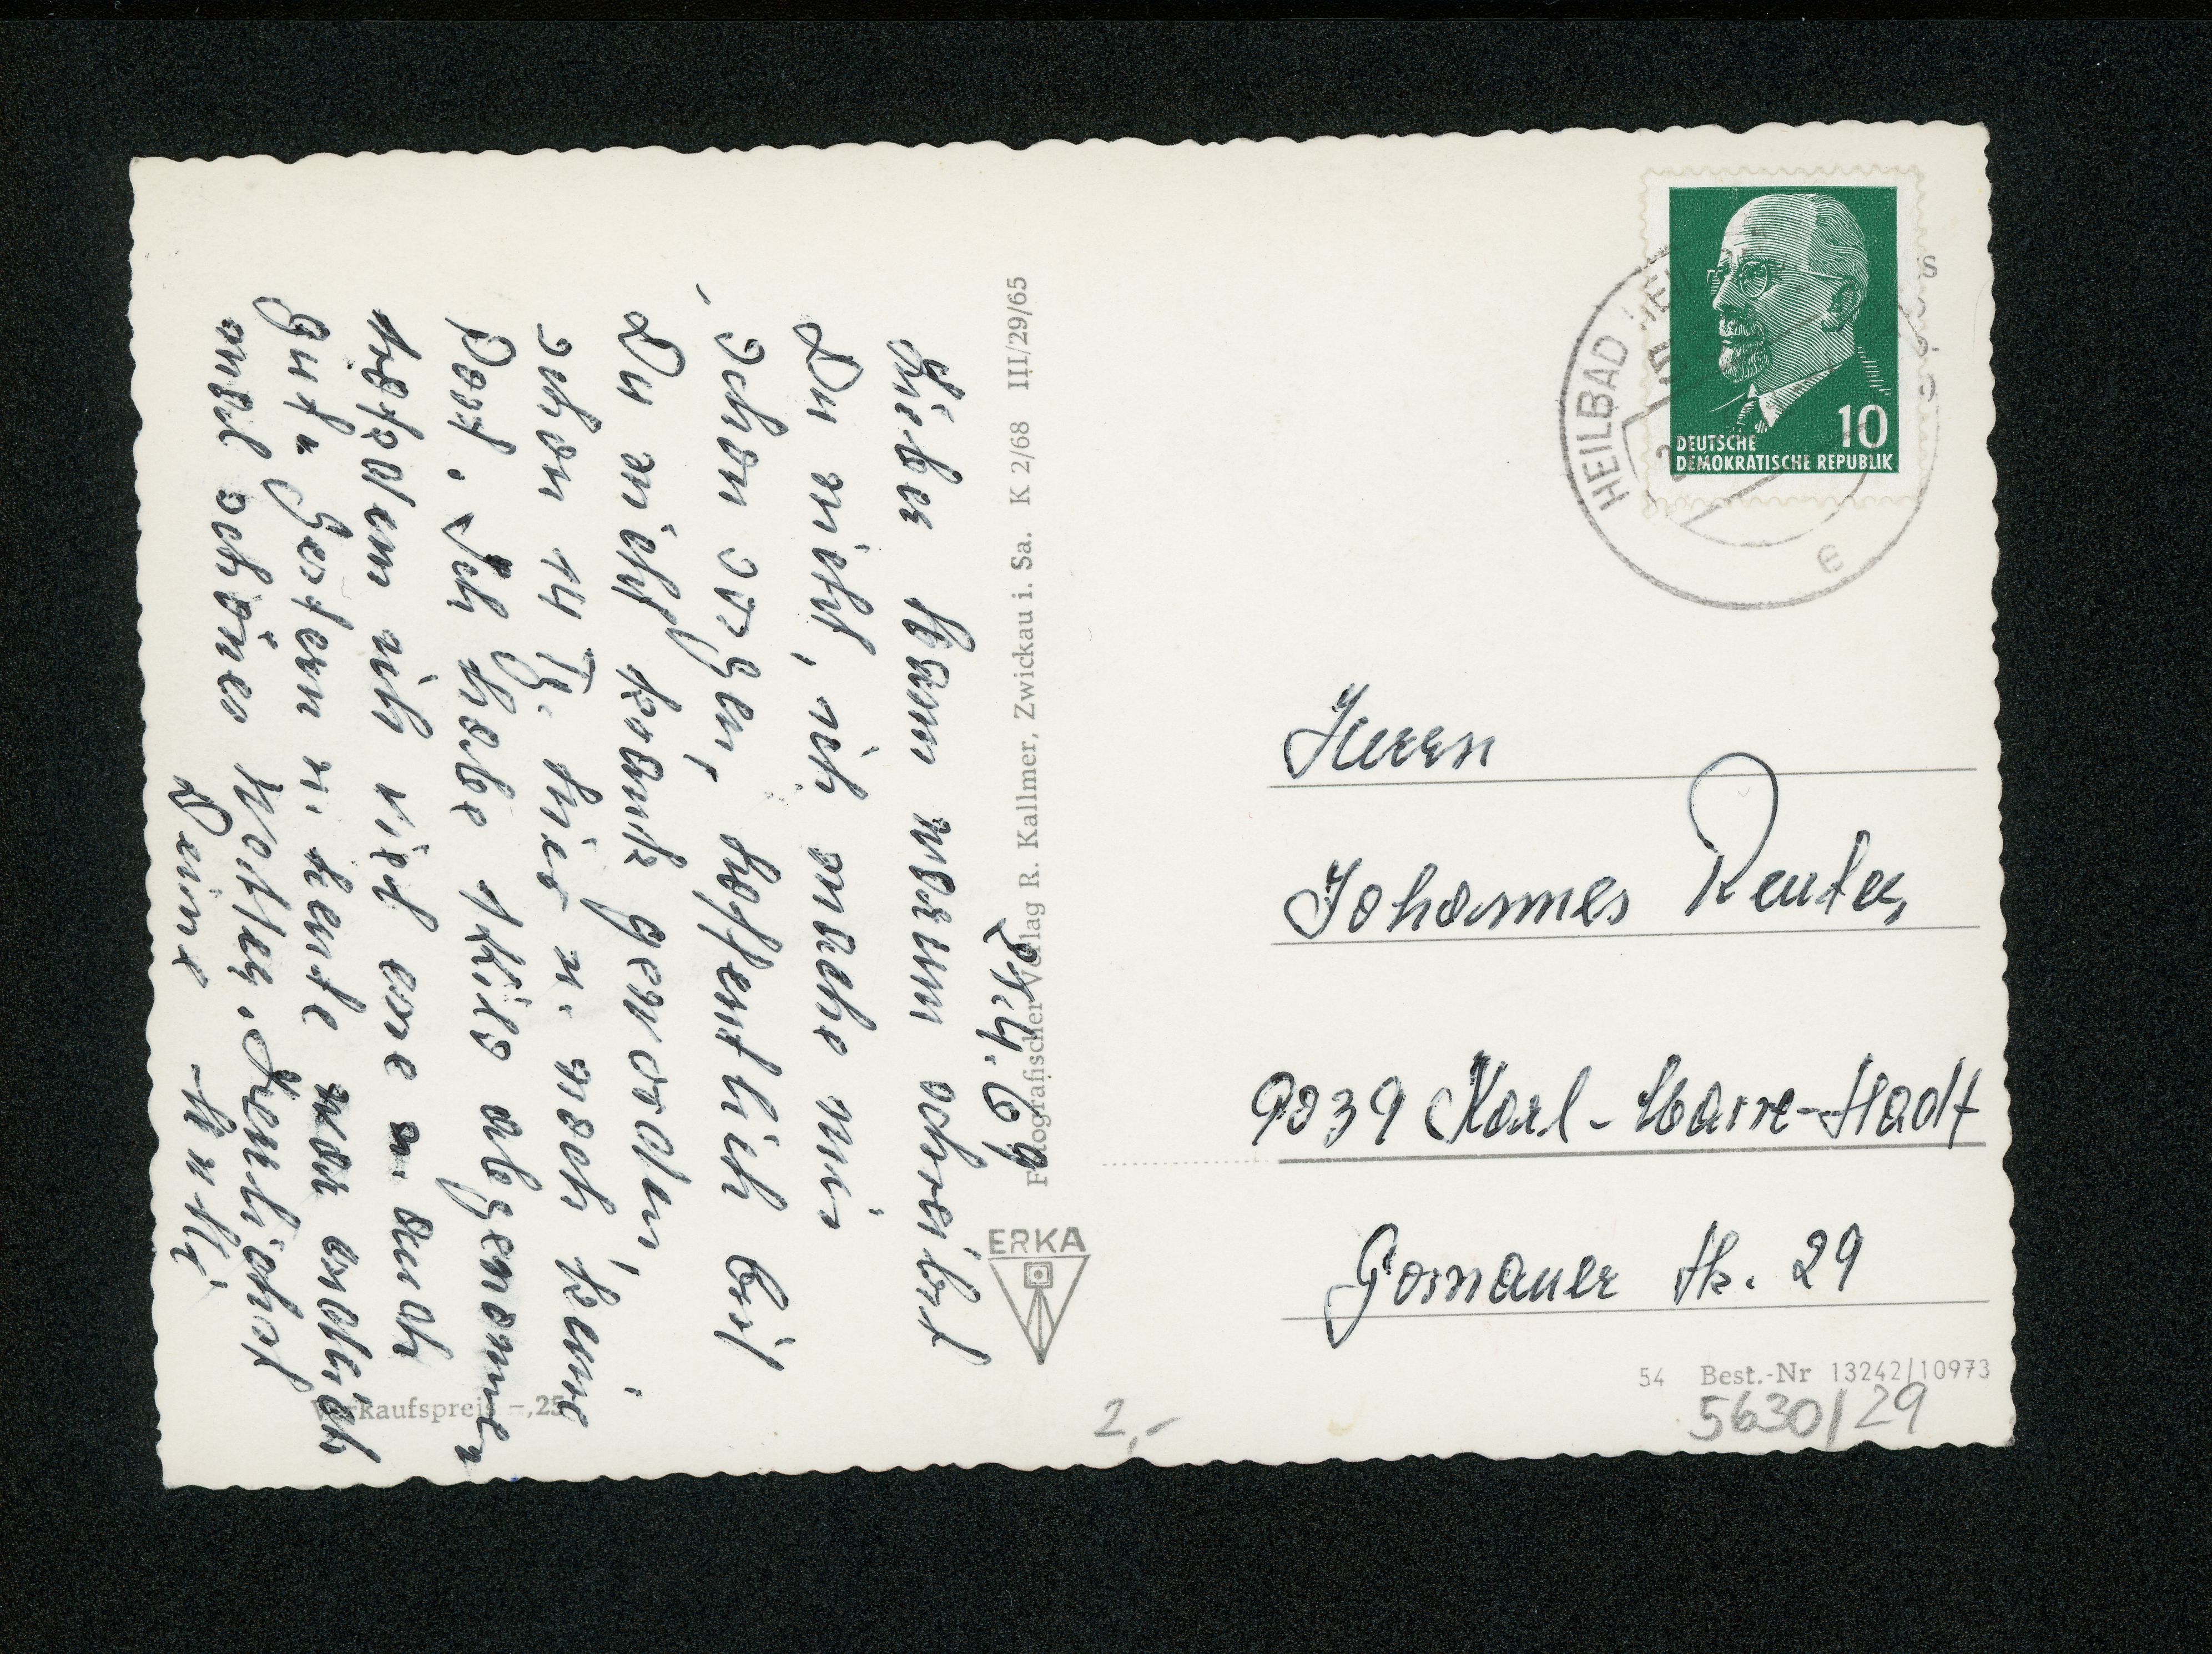 24.4.69
Lieber Hans warum schreibst
Du nicht, ich mache mir
schon Sorgen, hoffentlich bist
Du nicht krank geworden,
schon 14 Tg. hier u. noch keine
Post. Ich habe 1 Kilo abgenommen
trotzdem ich viel esse u. auch
gut. Gestern u. heute war endlich
mal schönes Wetter. Herzlichst
Deine
Fotografischer Verlag R. Kallmer, Zwickau i. Sa. K 2/68 III/29/65
ERKA
Verkaufspreis -,25
DEUTSCHE
DEMOKRATISCHE REPUBLIK
10
HEILBAD
e
Herrn
Johannes Reuter
9039 Karl-Marx-Stadt
Gornauer Str. 29
54 Best.-Nr 13242/10973
5630/29
2,-